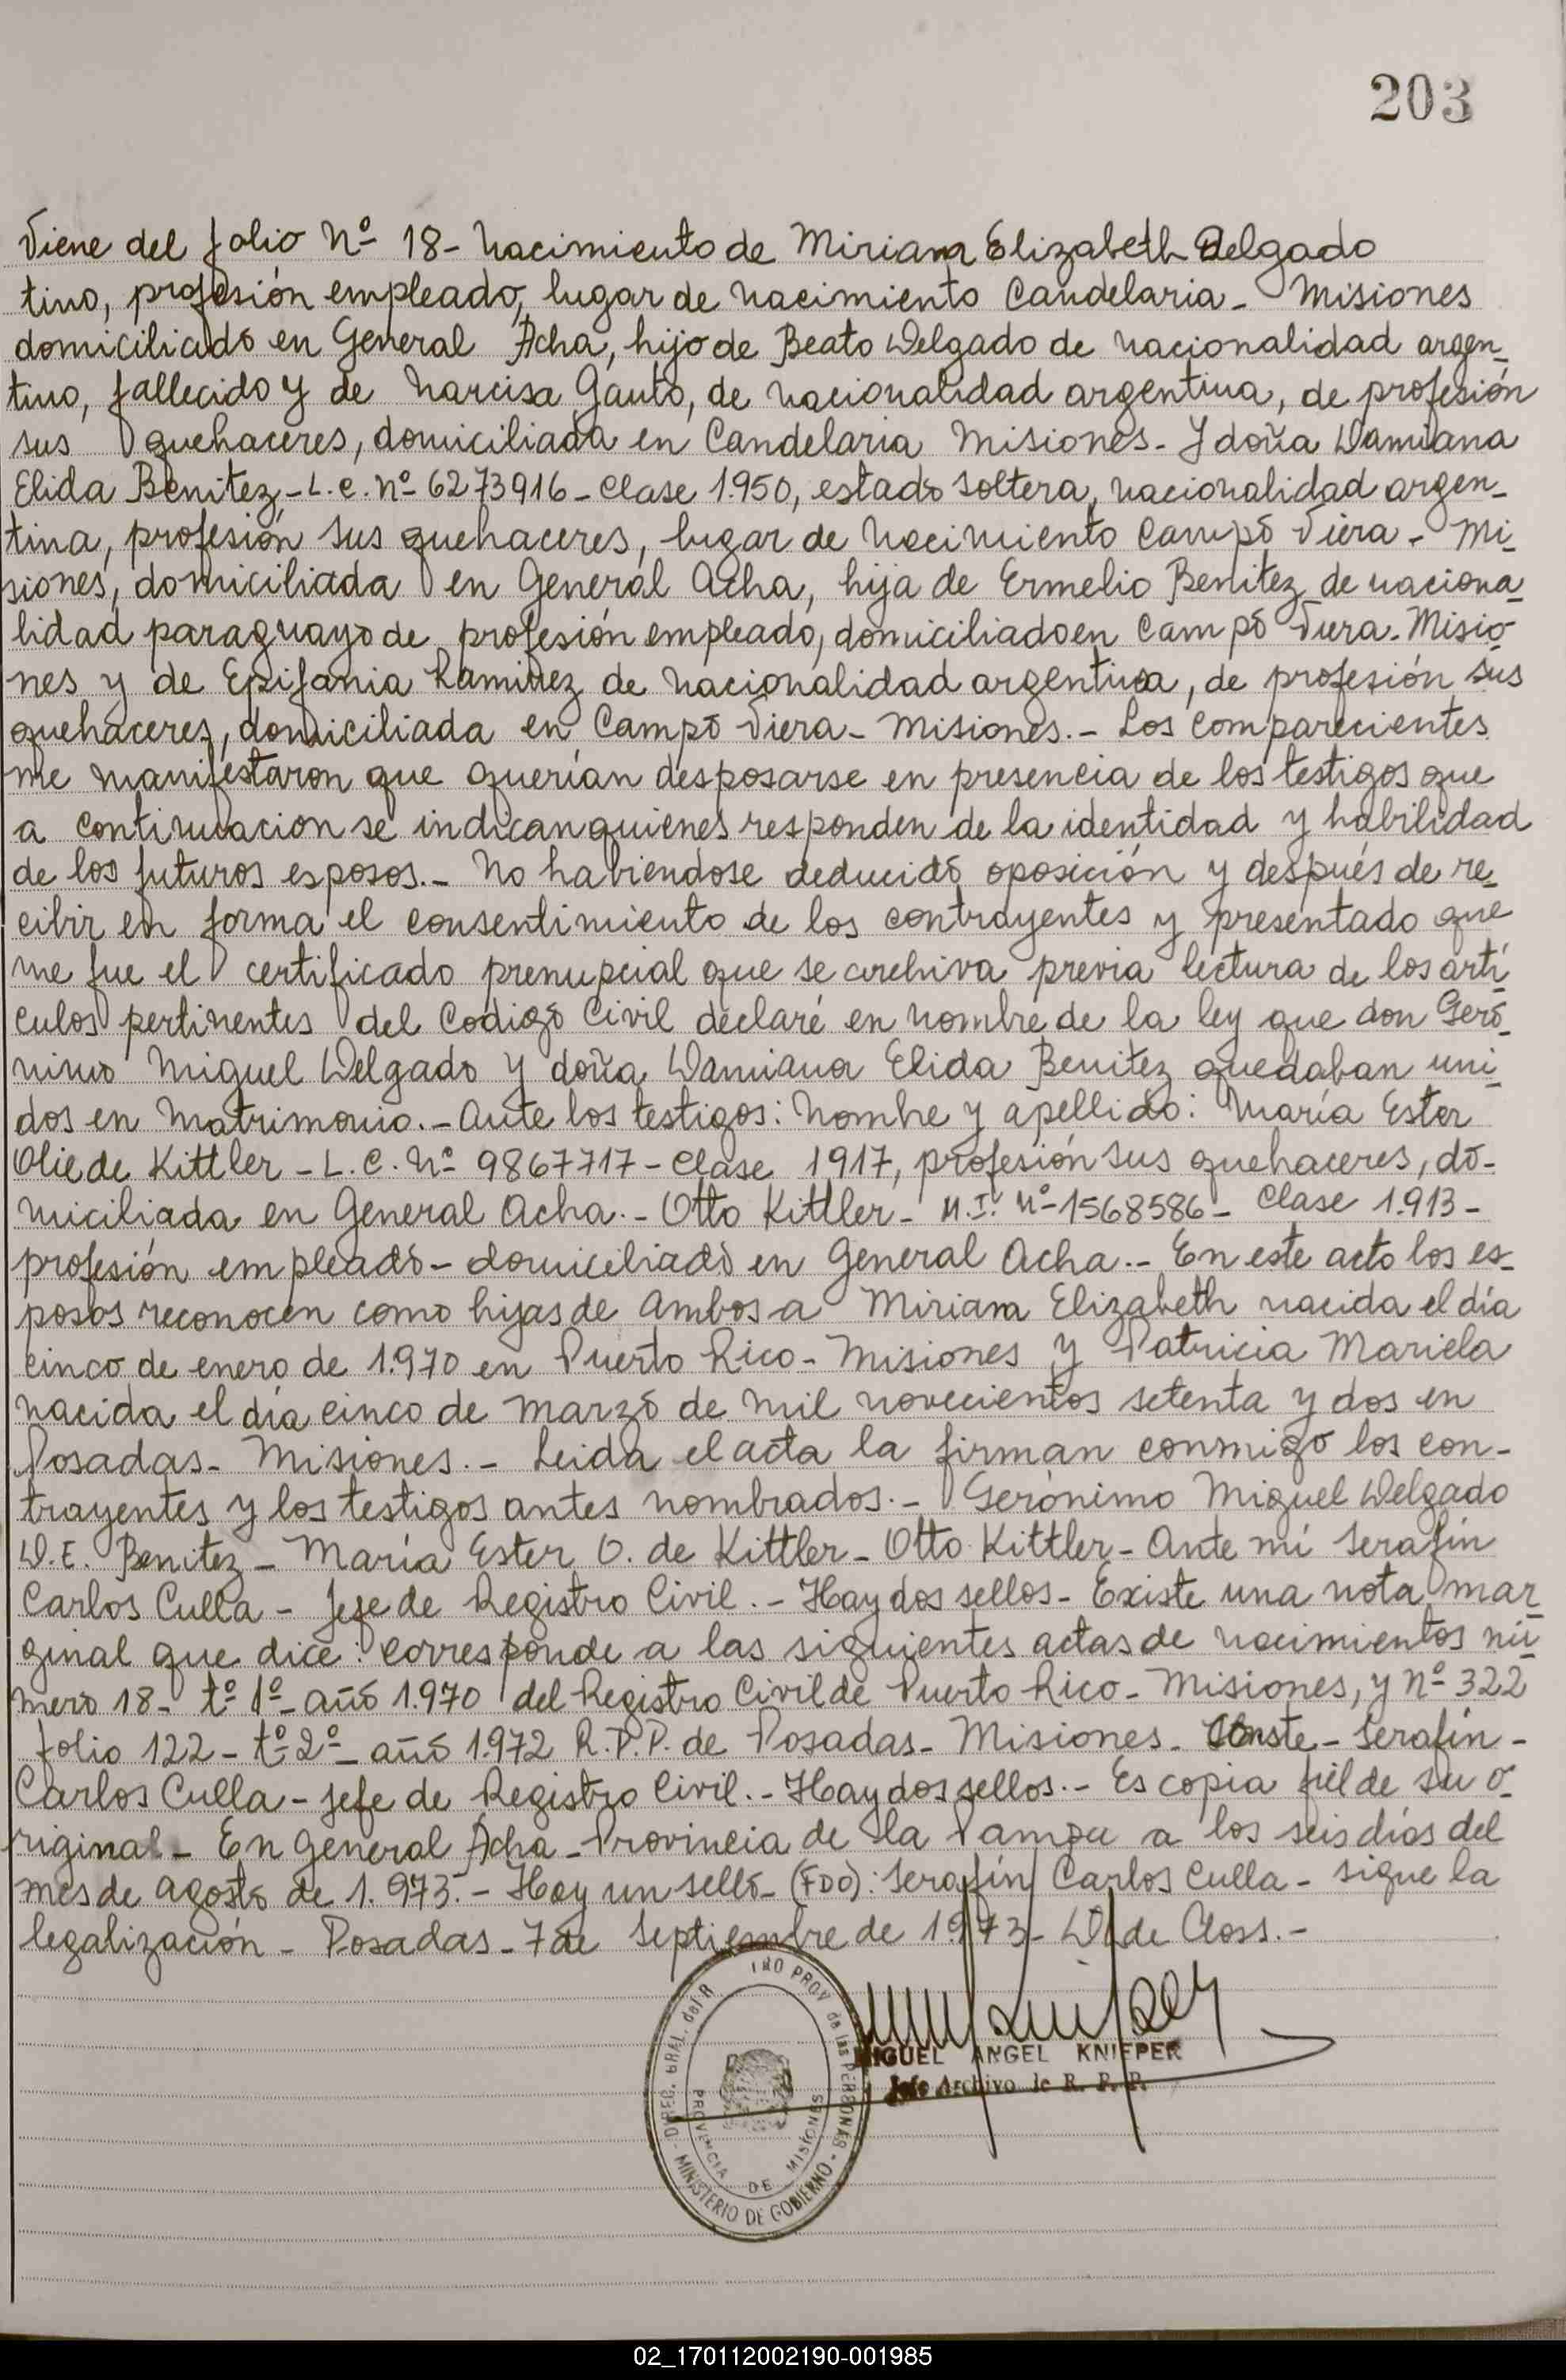 203
Viene del folio Nº 18- Nacimiento de Miriam Elizabeth Delgado
tino, profesión empleado, lugar de nacimiento Candelaria - Misiones
domiciliado en General Acha, hijo de Beato Delgado de nacionalidad argen-
tino, fallecido y de Narcisa Gauto, de nacionalidad argentina, de profesión
sus quehaceres, domiciliada en Candelaria Misiones - Y doña Damiana
Elida Benitez - L.C. Nº 6273916 - Clase 1.950, estado soltera, nacionalidad argen-
tina, profesión sus quehaceres, lugar de nacimiento Campo Viera - Mi-
siones, domiciliada en General Acha, hija de Ermelio Benitez de naciona-
lidad paraguayo de profesión empleado, domiciliado en Campo Viera - Misio-
nes y de Epifania Ramirez de nacionalidad argentina, de profesión sus
quehaceres, domiciliada en Campo Viera - Misiones.- Los comparecientes
me manifestaron que querían desposarse en presencia de los testigos que
a continuacion se indican quienes responden de la identidad y habilidad
de los futuros esposos.- No habiendose deducido oposición y después de re-
cibir en forma el consentimiento de los contrayentes y presentado que
me fue el certificado prenupcial que se archiva previa lectura de los artí-
culos pertinentes del Codigo Civil declaré en nombre de la ley que don Geró-
nimo Miguel Delgado y doña Damiana Elida Benitez quedaban uni-
dos en Matrimonio.- Ante los testigos: Nombre y apellido: María Ester
Olie de Kittler - L.C. Nº 9867717 - Clase 1917, profesión sus quehaceres, do-
miciliada en General Acha.- Otto Kittler - M.I. Nº 1568586 - Clase 1.913 -
profesión empleado - domiciliado en General Acha.- En este acto los es-
posos reconocen como hijas de ambos a Miriam Elizabeth nacida el día
cinco de enero de 1.970 en Puerto Rico - Misiones y Patricia Mariela
nacida el día cinco de marzo de mil novecientos setenta y dos en
Posadas - Misiones.- Leida el acta la firman conmigo los con-
trayentes y los testigos antes nombrados.- Gerónimo Miguel Delgado
D.E. Benitez - María Ester O. de Kittler - Otto Kittler - Ante mí Serafín
Carlos Culla - Jefe de Registro Civil.- Hay dos sellos - Existe una nota mar-
ginal que dice: corresponde a las siguientes actas de nacimientos nú-
mero 18 - tº 1º - año 1.970 del Registro Civil de Puerto Rico - Misiones, y Nº 322
folio 122 - tº 2º - año 1.972 R.P.P. de Posadas - Misiones - Conste - Serafín -
Carlos Culla - Jefe de Registro Civil.- Hay dos sellos.- Es copia fiel de su o-
riginal - En General Acha - Provincia de La Pampa a los seis días del
mes de agosto de 1.973.- Hay un sello - (FDO): Serafín Carlos Culla - sigue la
legalización - Posadas - 7 de Septiembre de 1973 - D. de Closs.-
MIGUEL ANGEL KNIEPER
Jefe Archivo de R. P. P.
MINISTERIO DE GOBIERNO
PROVINCIA DE MISIONES
02_170112002190-001985